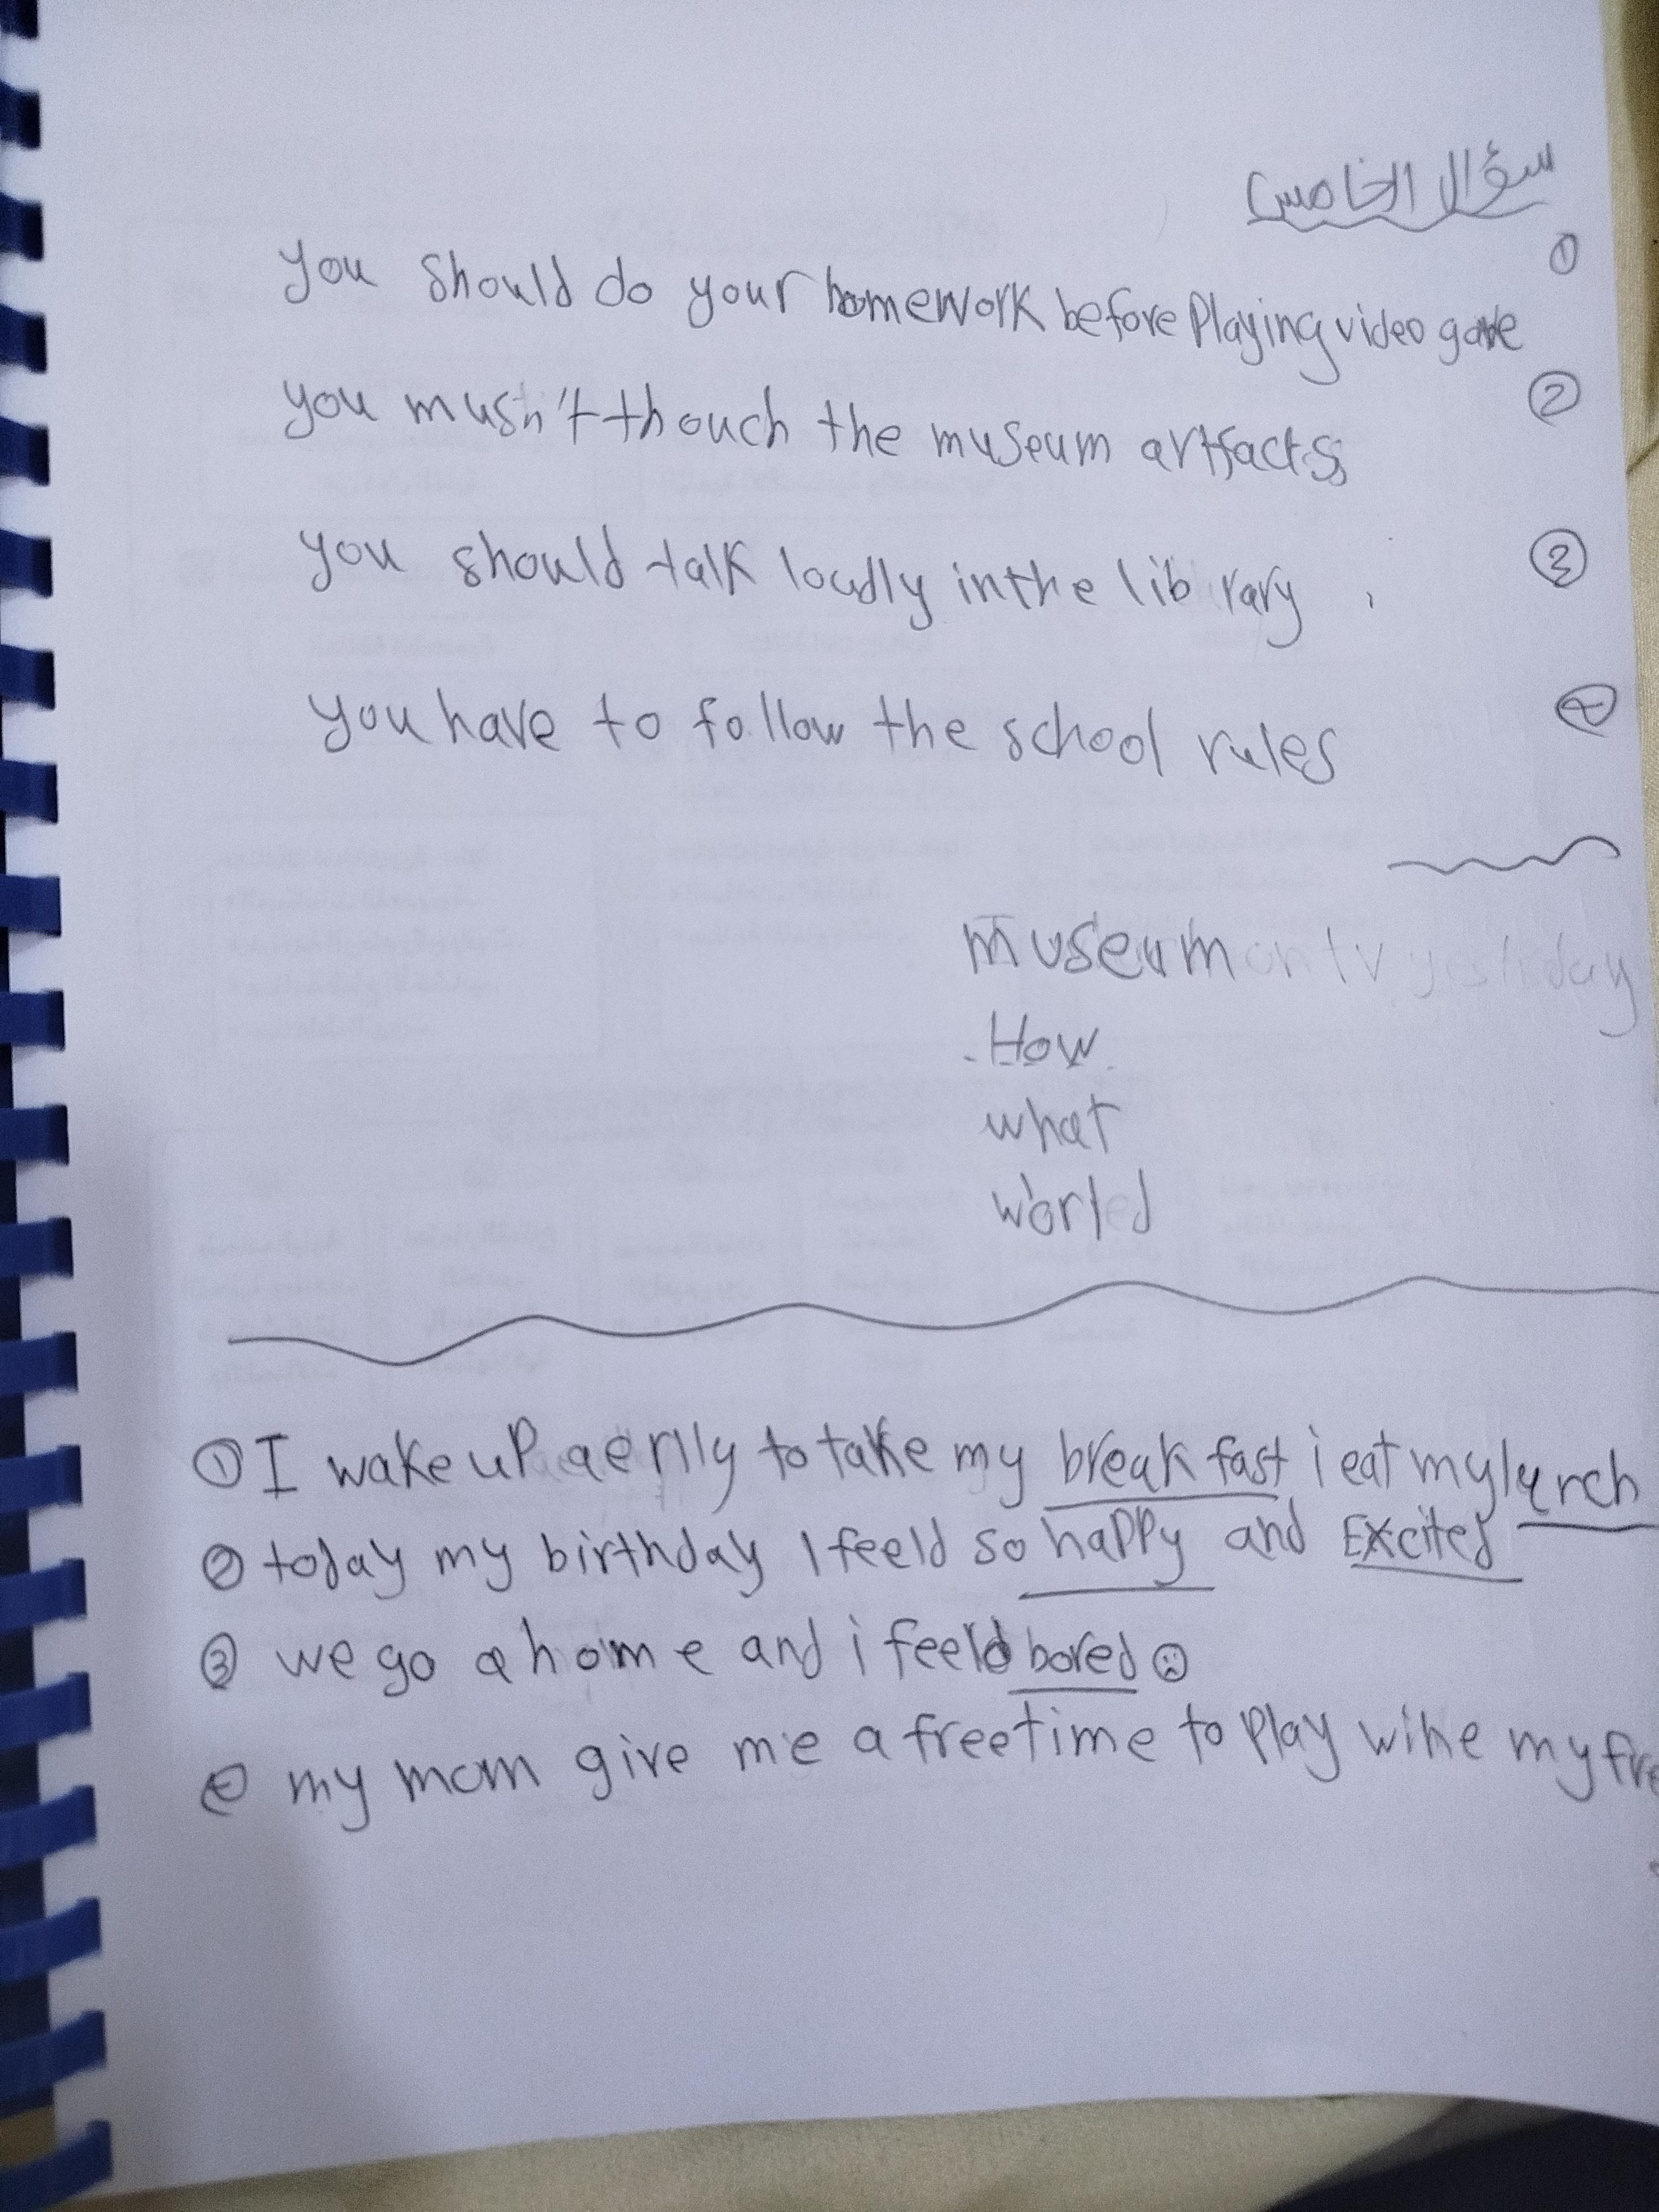 سؤال الخامس
①
you should do your homework before Playing video game
②
you mushn't thouch the museum artfacts
③
you should talk loudly in the library
④
you have to follow the school rules
museum on tv yesterday
How
what
worled
① I wake up aerlly to take my breakfast i eat my lunch
② today my birthday I feeld so happy and Excited
③ we go a home and i feeld bored
④ my mom give me a free time to Play withe my fre